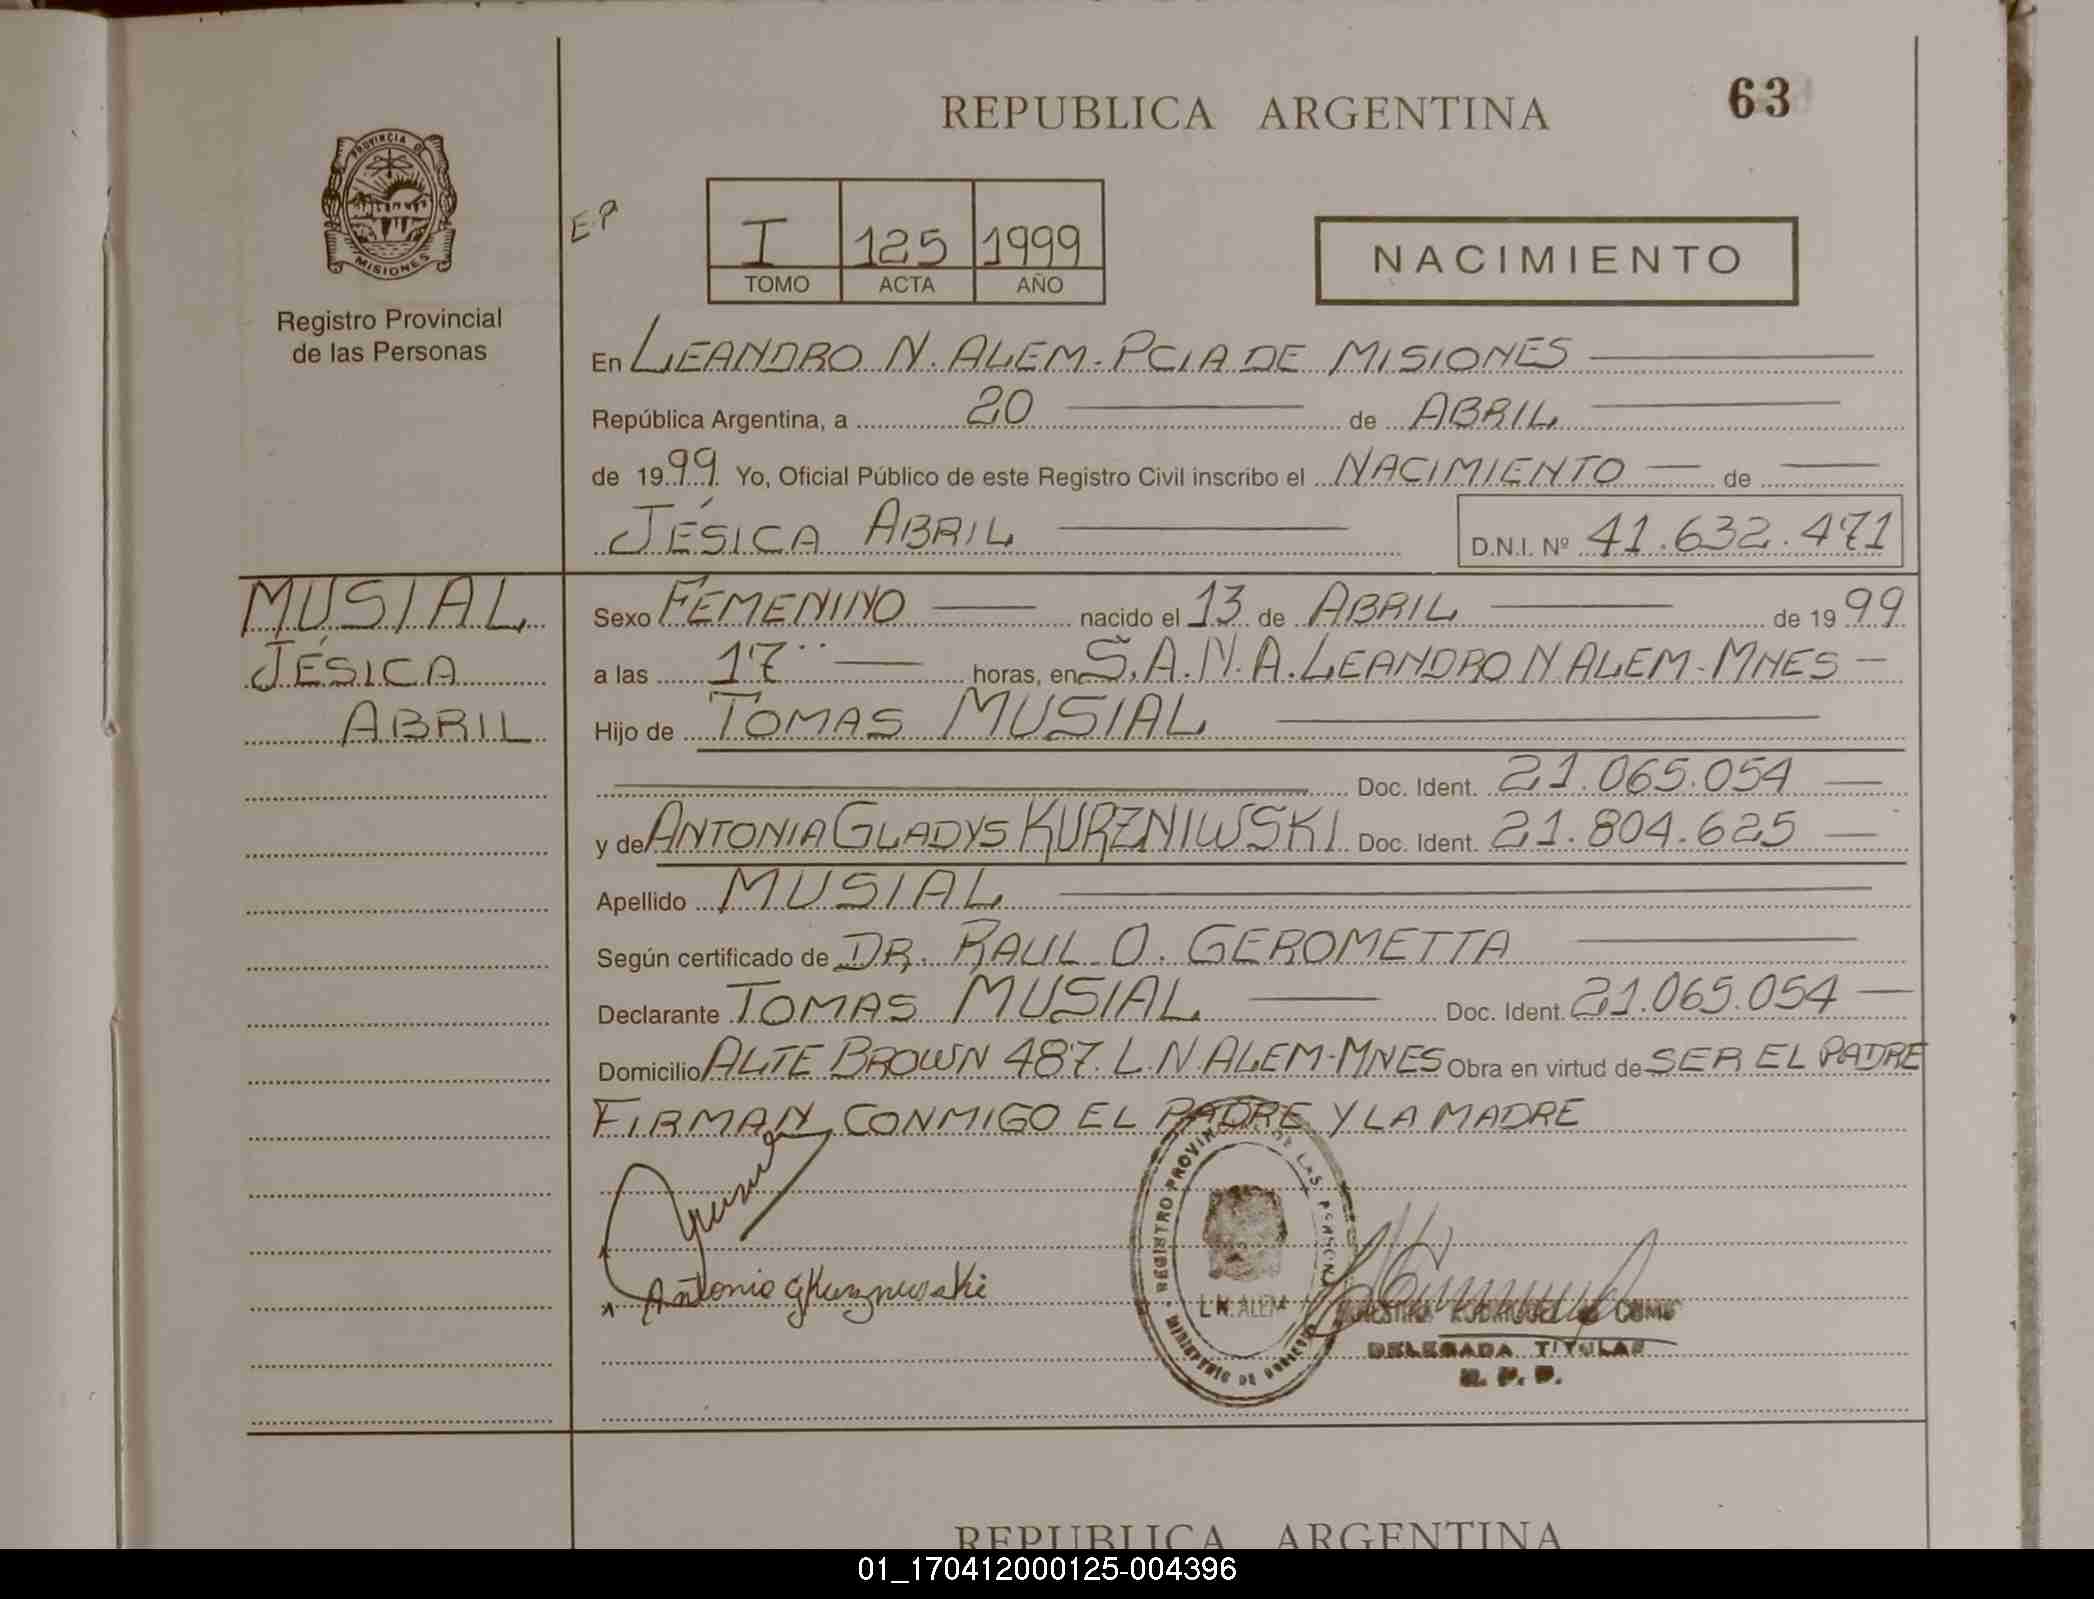 REPUBLICA ARGENTINA
63
PROVINCIA D
MISIONES
Registro Provincial
de las Personas
EP
I 125 1999
TOMO ACTA AÑO
NACIMIENTO
En LEANDRO N. ALEM - PCIA DE MISIONES
República Argentina, a 20 de ABRIL
de 1999 Yo, Oficial Público de este Registro Civil inscribo el NACIMIENTO de
JÉSICA ABRIL D.N.I. Nº 41.632.471
MUSIAL
JÉSICA
ABRIL
Sexo FEMENINO nacido el 13 de ABRIL de 1999
a las 17 horas, en S.A.N.A. LEANDRO N ALEM - MNES
Hijo de TOMAS MUSIAL
Doc. Ident. 21.065.054
y de ANTONIA GLADYS KURZNIWSKI Doc. Ident. 21.804.625
Apellido MUSIAL
Según certificado de DR. RAUL O. GEROMETTA
Declarante TOMAS MUSIAL Doc. Ident. 21.065.054
Domicilio ALTE BROWN 487. L.N.ALEM-MNES Obra en virtud de SER EL PADRE
FIRMAN CONMIGO EL PADRE Y LA MADRE
REGISTRO PROVIN DE LAS PERSONA
L.N. ALEM
MINISTERIO DE GOBIERNO
RODRIGUEZ de
DELEGADA TITULAR
R. P. P.
REPUBLICA ARGENTINA
01_170412000125-004396